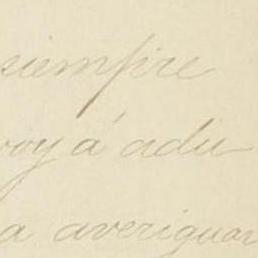 siempre
voy á adu
a averiguar